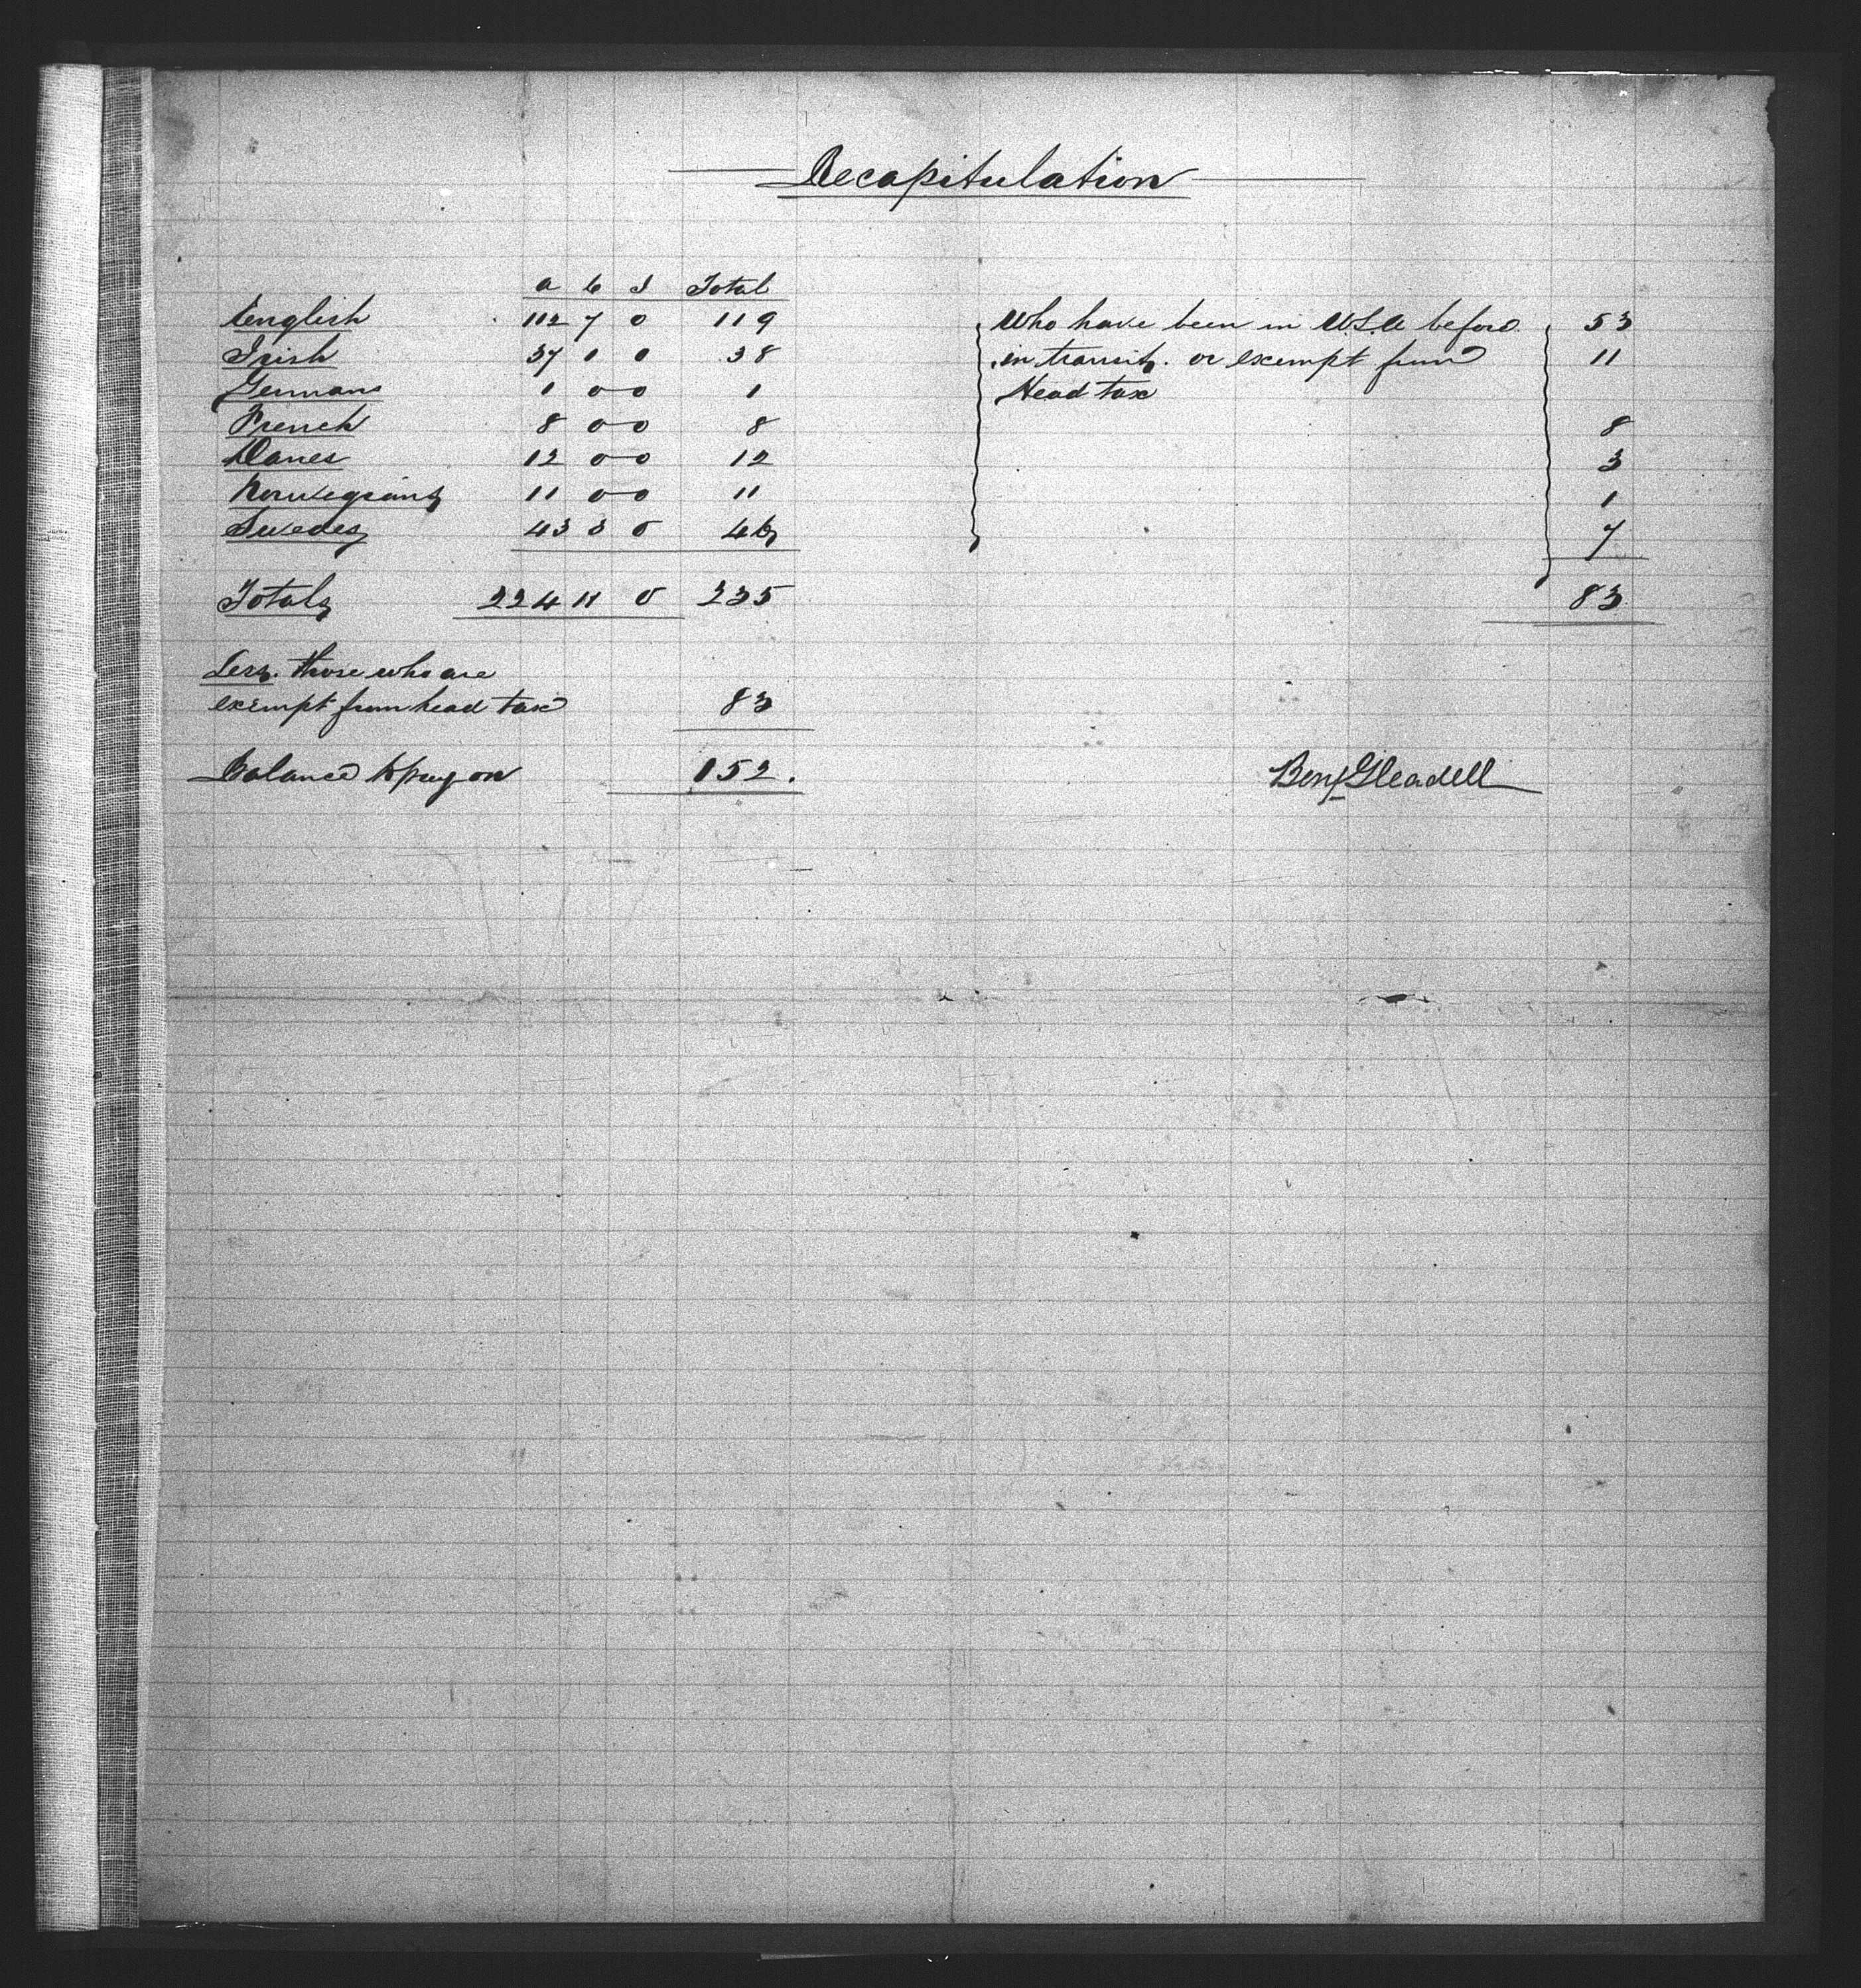 Recapitulation
a c I Total
English 112 7 0 119 Who have been in U.S.A before. 53
Irish 37 1 0 38 in transit. or exempt from 11
Germans 1 0 0 1 Head tax
French 8 0 0 8 8
Danes 12 0 0 12 3
Norwegians 11 0 0 11 1
Swedes 43 3 0 46 7
Totals 224 11 0 235 83
Less. those who are
exempt from head tax 83
Balance to pay on 152.
Benj Gleadell